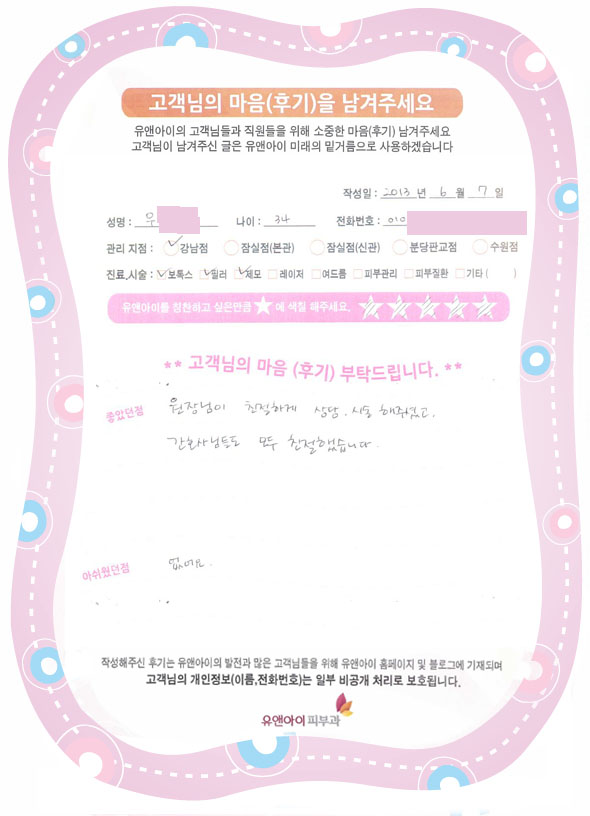 고객님의 마음(후기)을 남겨주세요
유앤아이의 고객님들과 직원들을 위해 소중한 마음(후기) 남겨주세요
고객님이 남겨주신 글은 유앤아이 미래의 밑거름으로 사용하겠습니다
작성일 : 2013 년 6 월 7 일
성명 : 우 나이 : 34 전화번호 : 010
관리 지점 : 강남점 잠실점(본관) 잠실점(신관) 분당판교점 수원점
진료.시술 : 보톡스 필러 제모 레이저 여드름 피부관리 피부질환 기타 ( )
유앤아이를 칭찬하고 싶은만큼 ★ 에 색칠 해주세요.
** 고객님의 마음 (후기) 부탁드립니다. **
좋았던점 원장님이 친절하게 상담, 시술 해주셨고,
간호사님들도 모두 친절했습니다.
아쉬웠던점 없어요.
작성해주신 후기는 유앤아이의 발전과 많은 고객님들을 위해 유앤아이 홈페이지 및 블로그에 기재되며
고객님의 개인정보(이름,전화번호)는 일부 비공개 처리로 보호됩니다.
유앤아이피부과